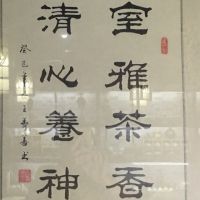 室雅茶香
清心養神
癸巳年